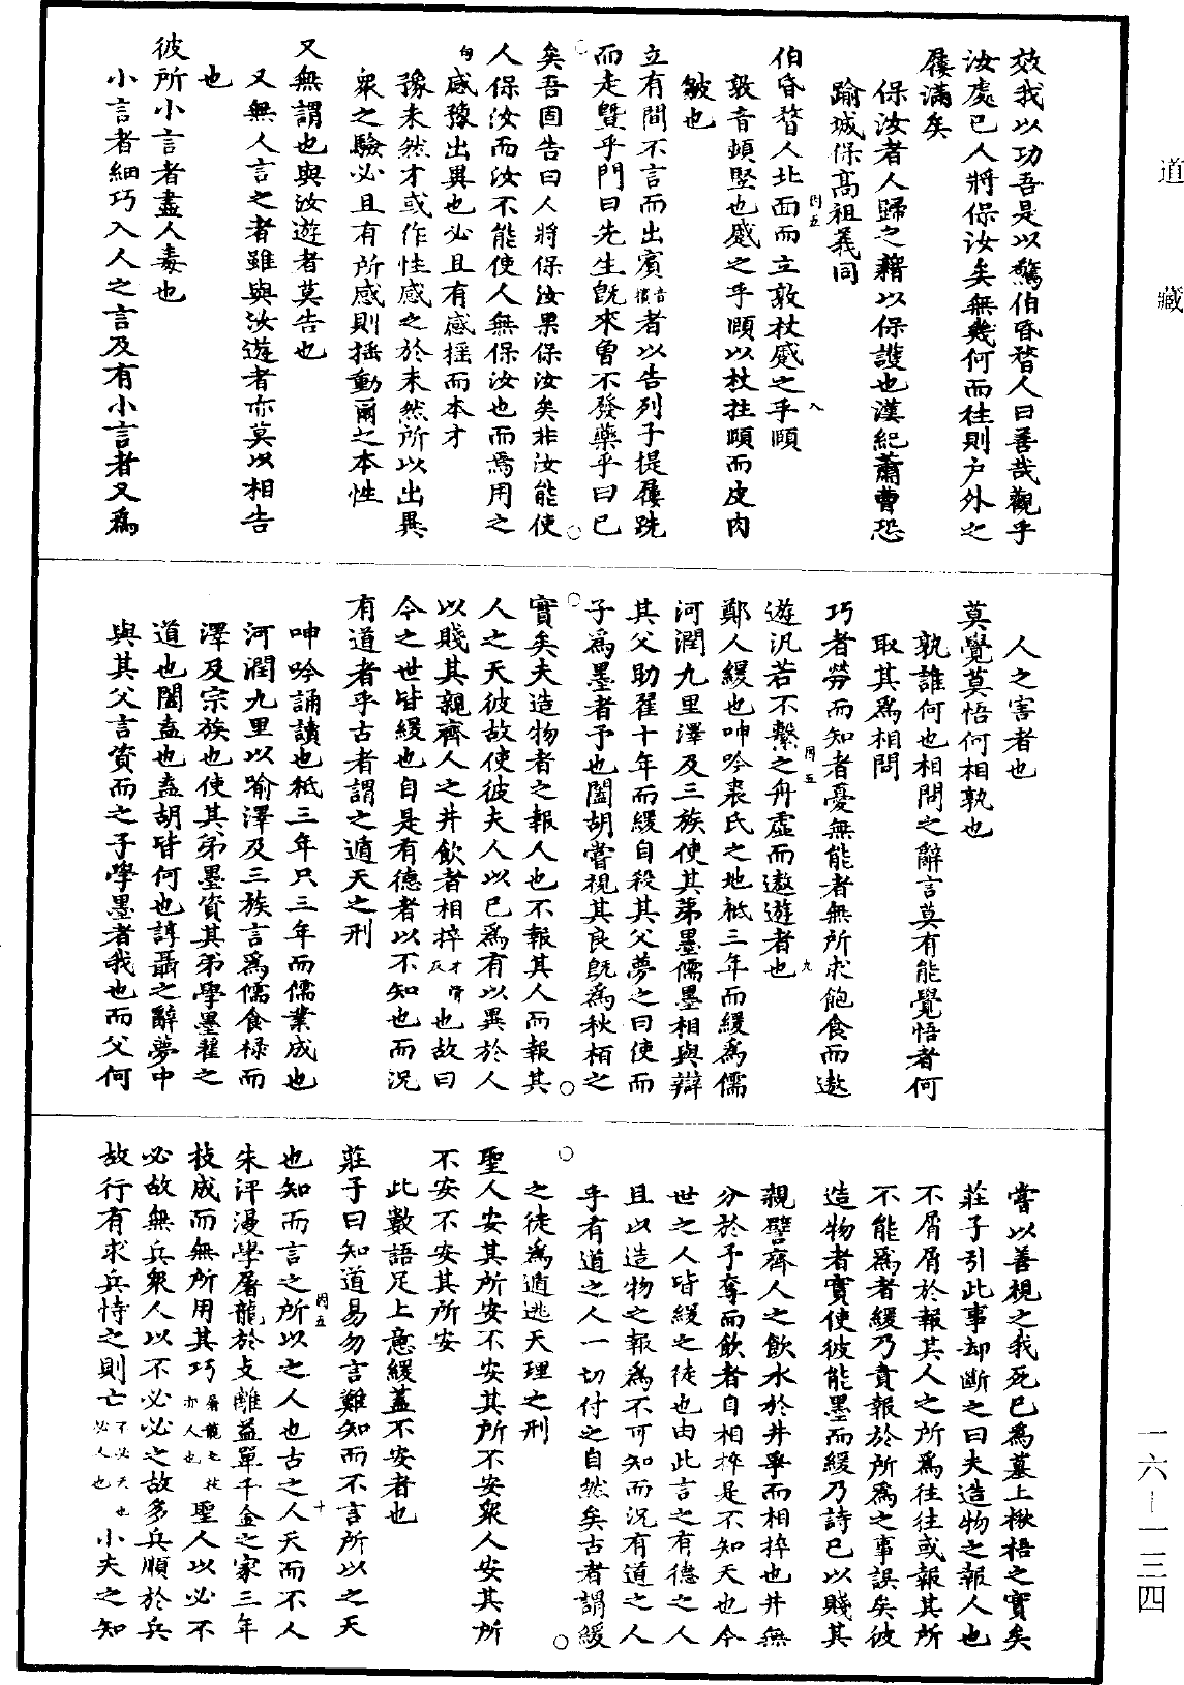 道藏
效我以功吾是以驚伯昏瞀人曰善哉觀乎
汝處已人將保汝矣無幾何而往則戶外之
屨滿矣
保汝者人歸之藉以保護也漢紀蕭曹恐
踰城保高祖義同
伯昏瞀人北面而立敦杖蹙之乎頤
敦音頓豎也蹙之乎頤以杖拄頤而皮肉
皴也
立有間不言而出賓音擯者以告列子提屨跣
而走暨乎門曰先生既來曾不發藥乎曰已
矣吾固告曰人將保汝果保汝矣非汝能使
人保汝而汝不能使人無保汝也而焉用之
句感豫出異也必且有感搖而本才
豫未然才或作性感之於未然所以出異
眾之驗必且有所感則搖動爾之本性
又無謂也與汝遊者莫告也
又無人言之者雖與汝遊者亦莫以相告
也
彼所小言者盡人毒也
小言者細巧入人之言及有小言者又爲
人之害者也
莫覺莫悟何相孰也
孰誰何也相問之辭言莫有能覺悟者何
取其爲相問
巧者勞而知者憂無能者無所求飽食而遨
遊汎若不繫之舟虛而遨遊者也
鄭人緩也呻吟裘氏之地祗三年而緩爲儒
河潤九里澤及三族使其弟墨儒墨相與辯
其父助翟十年而緩自殺其父夢之曰使而
子爲墨者予也闔胡嘗視其良既爲秋栢之
實矣夫造物者之報人也不報其人而報其
人之天彼故使彼夫人以已爲有以異於人
以賤其親齊人之井飲者相捽才骨反也故曰
今之世皆緩也自是有德者以不知也而況
有道者乎古者謂之遁天之刑
呻吟誦讀也祗三年只三年而儒業成也
河潤九里以喻澤及三族言爲儒食祿而
澤及宗族也使其弟墨資其弟學墨翟之
道也闔盍也盍胡皆何也諄聶之辭夢中
與其父言資而之子學墨者我也而父何
嘗以善視之我死已爲墓上楸梧之實矣
莊子引此事却斷之曰夫造物之報人也
不屑屑於報其人之所爲往往或報其所
不能爲者緩乃責報於所爲之事誤矣彼
造物者實使彼能墨而緩乃詩已以賤其
親譬齊人之飲水於井爭而相捽也井無
分於予奪而飲者自相捽是不知天也今
世之人皆緩之徒也由此言之有德之人
且以造物之報爲不可知而況有道之人
乎有道之人一切付之自然矣古者謂緩
之徒爲遁逃天理之刑
聖人安其所安不安其所不安衆人安其所
不安不安其所安
此數語足上意緩蓋不安者也
莊子曰知道易勿言難知而不言所以之天
也知而言之所以之人也古之人天而不人
朱泙漫學屠龍於支離益單千金之家三年
技成而無所用其巧屠龍之技亦人也聖人以必不
必故無兵衆人以不必必之故多兵順於兵
故行有求兵恃之則亡不必天也必人也小夫之知
一六—一三四